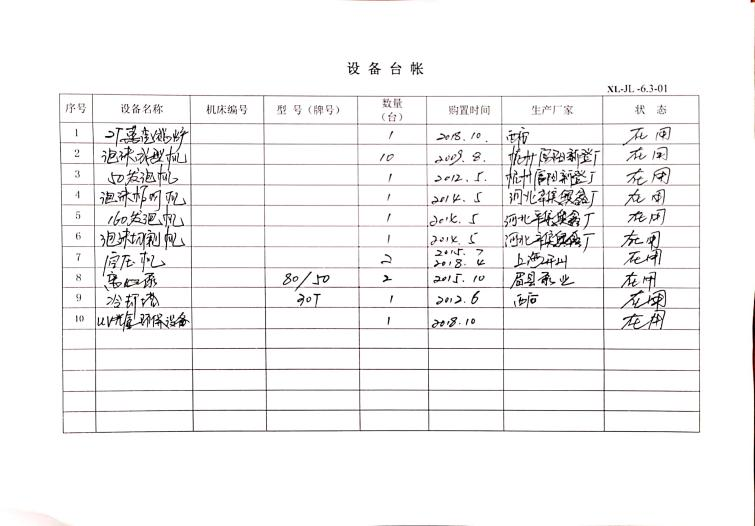 设备台帐
XL-JL-6.3-01
序号 设备名称 机床编号 型号(牌号) 数量(台) 购置时间 生产厂家 状态
1 2T蒸 炉 1 2018.10. 西 在用
2 泡沫成型机 10 2009.8. 杭州富阳新登厂 在用
3 50发泡机 1 2012.5. 杭州富阳新登厂 在用
4 泡沫 机 1 2014.5 河北辛集 厂 在用
5 160发泡机 1 2014.5 河北辛集 厂 在用
6 泡沫切割机 1 2014.5 河北辛集 厂 在用
7 空压机 2 2015.7 2018.4 上海开山 在用
8 离心泵 80/50 2 2015.10 眉县泵业 在用
9 冷却塔 30T 1 2012.6 西 在用
10 UV光氧环保设备 1 2018.10 在用